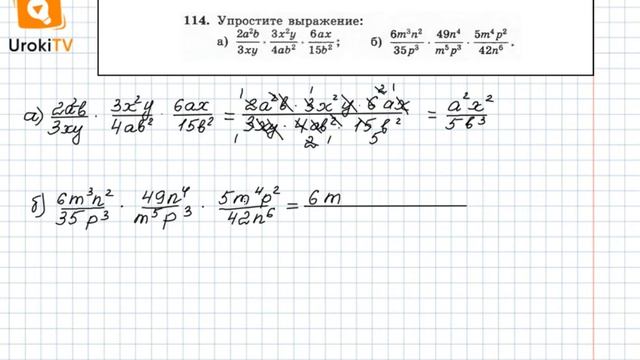 UrokiTV
114. Упростите выражение:
а) 2a²b/3xy · 3x²y/4ab² · 6ax/15b²; б) 6m³n²/35p³ · 49n⁴/m⁵p³ · 5m⁴p²/42n⁶.
а) 2a²b/3xy · 3x²y/4ab² · 6ax/15b² = 2a²b · 3x²y · 6ax/3xy · 4ab² · 15b² = a²x²/5b³
б) 6m³n²/35p³ · 49n⁴/m⁵p³ · 5m⁴p²/42n⁶ = 6m